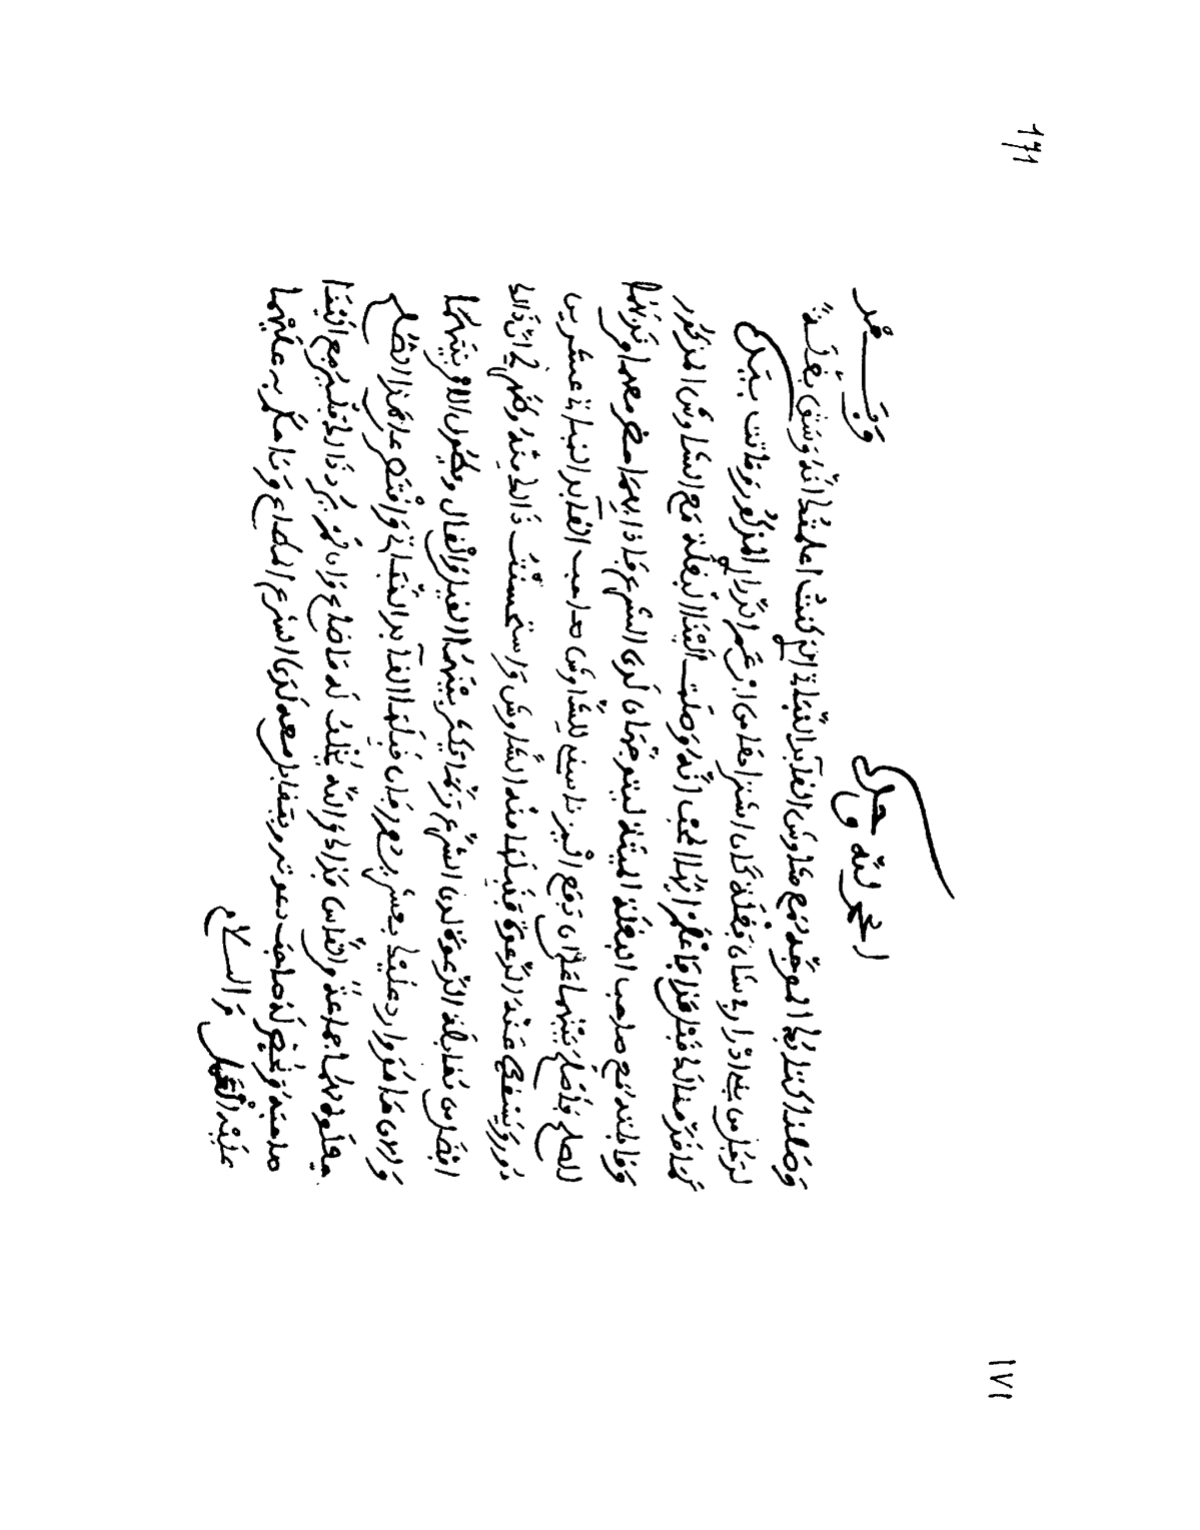 171
١٧١
الحمد لله وحده وبعد
وصلنا كتابك الموجه مع شاوش القايد النباية الذي كنت اعلمتك انه وسق بغلة
لرجل من بني كان اشتراها من ابن عم المذكور وماتت بيده
كما قدم ذالك قبل هذا فاعلم ايها المحب انه وصلت الينا البغلة مع الشاوش المذكور
وقابلته مع صاحب البغلة الميتة ليتوجهان لدى الشرع فاذا بهما
للصلح فاصلح بينهما على ان للشاوش صاحب القايد النباية عشرين
دورو عنه الدعوة فقبلها منه الشاوش واستحسنت ذالك منه وظهر لي ان ذالك
افضل من مقابلة الدعوة لدى الشرع وربما يكثر بينهما القيل والقال ويطول الامر بينهما
والان ها هو وارد عليك بعشرين دورو فان قبلها القايد النباية وامضى على هذا الصلح
والله يخلف له ما ضاع وان لم يرد ذالك فليرجع الينا
صاحبه ويحضر له صاحب دعوته ويتقابل معه لدى الشرع المطاع وما حكم به عليهما
عليه العمل والسلام